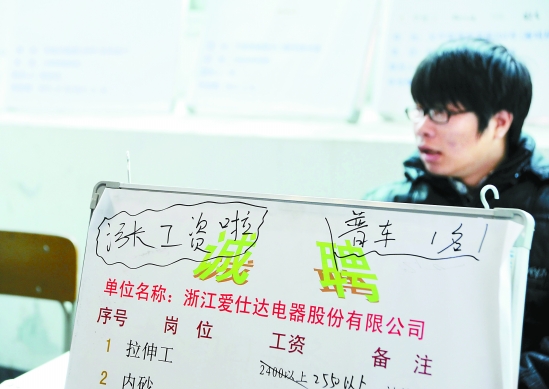 涨工资啦
普车 1名
诚聘
单位名称：浙江爱仕达电器股份有限公司
序号 岗位 工资 备注
1 拉伸工 2400以上 2550以上
2 内砂